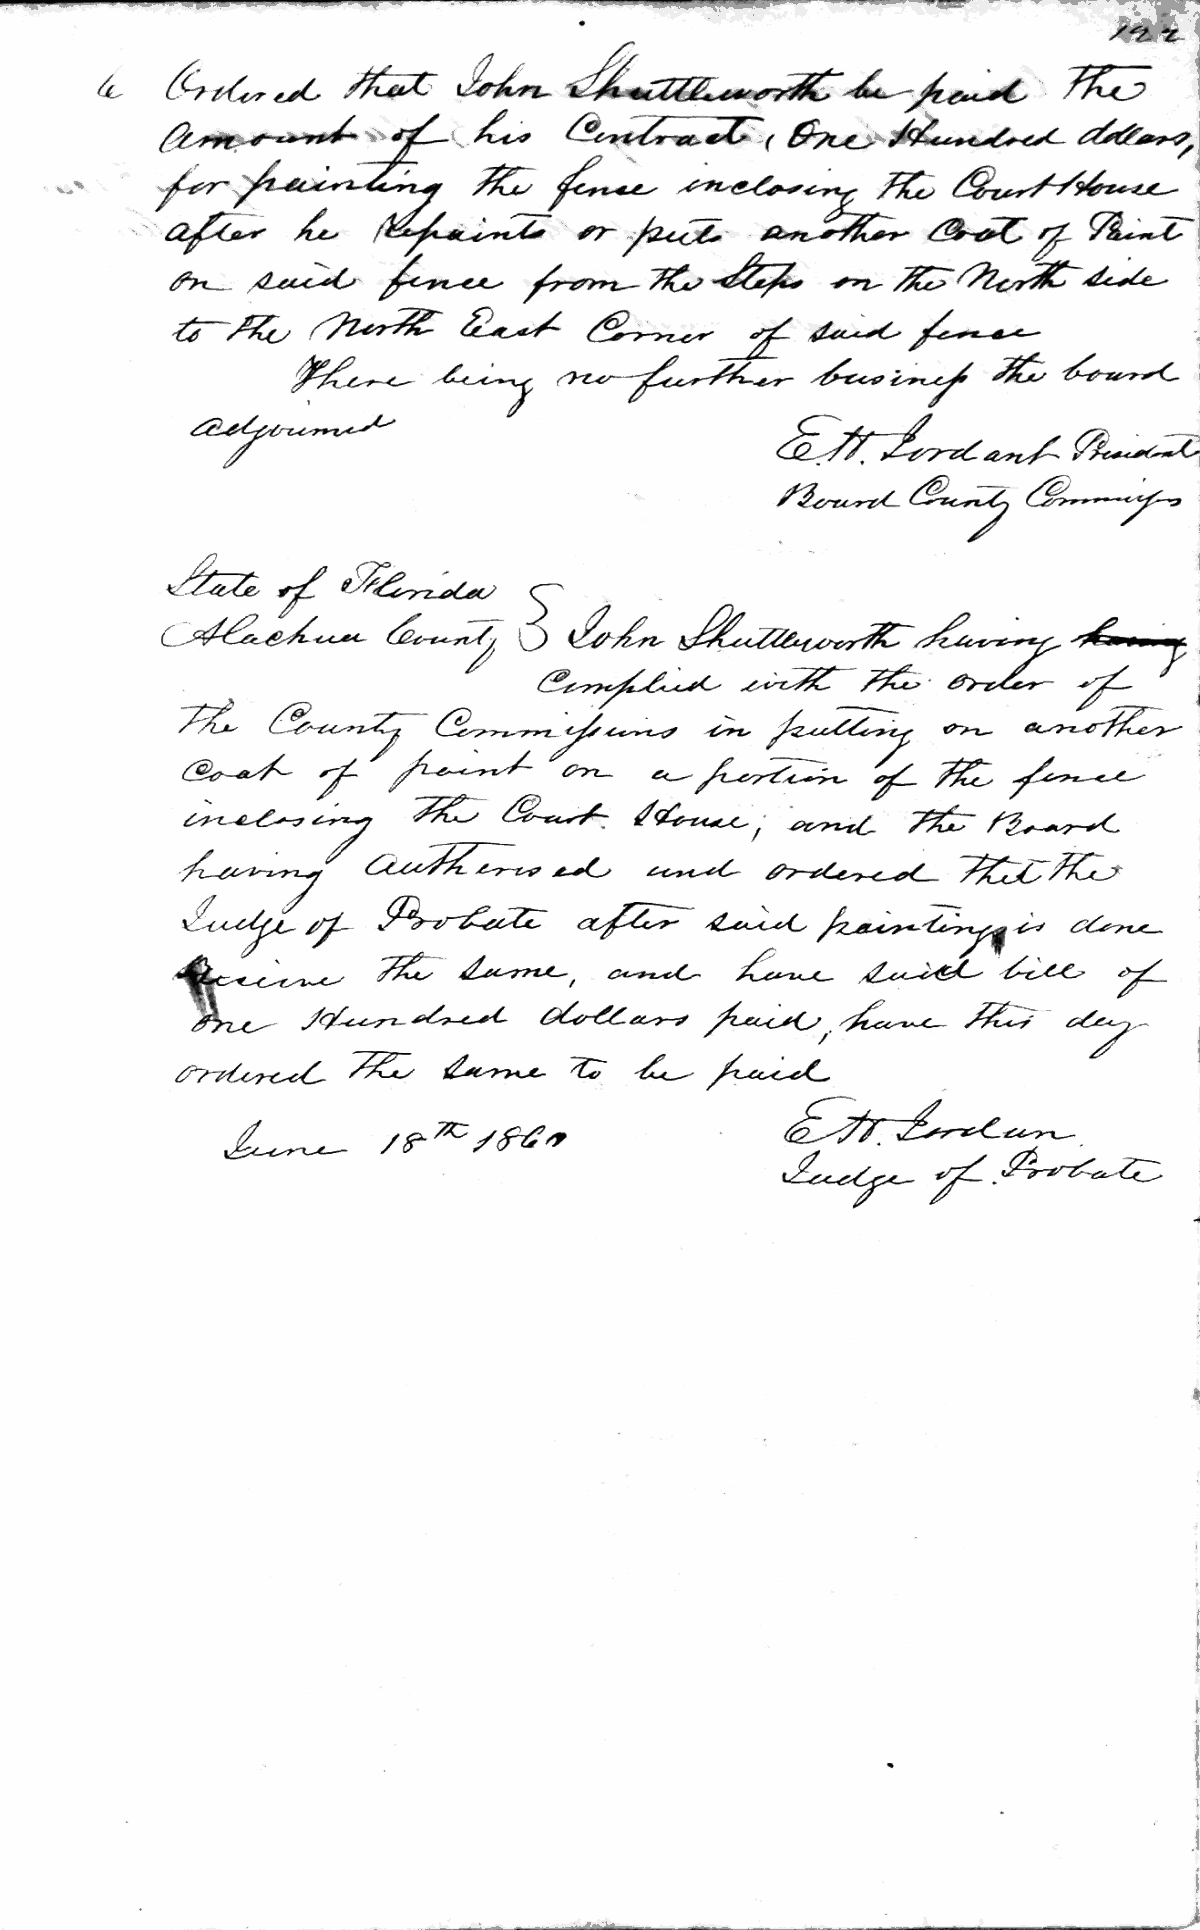 122
6 Ordered that John Shuttleworth be paid the
amount of his Contract, One Hundred dollars,
for painting the fence inclosing the Court House
after he repaints or puts another Coat of Paint
on said fence from the Steps on the North side
to the North East Corner of said fence
There being no further business the board
adjourned
E.H. Jordan President
Board County Commissrs
State of Florida
Alachua County } John Shuttleworth having having
Complied with the order of
the County Commissions in putting on another
Coat of paint on a portion of the fence
inclosing the Court House; and the Board
having authorised and ordered that the
Judge of Probate after said painting is done
Receive the same, and have said bill of
one Hundred dollars paid, have this day
ordered the same to be paid
June 18th 1860
E.H. Jordan
Judge of Probate